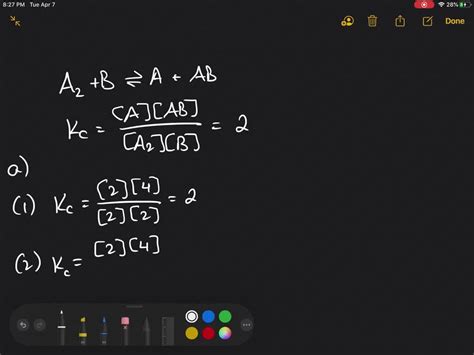 8:27 PM Tue Apr 7
28%
Done
A₂ + B ⇌ A + AB
Kc = [A][AB] / [A₂][B] = 2
a)
(1) Kc = [2][4] / [2][2] = 2
(2) Kc = [2][4]